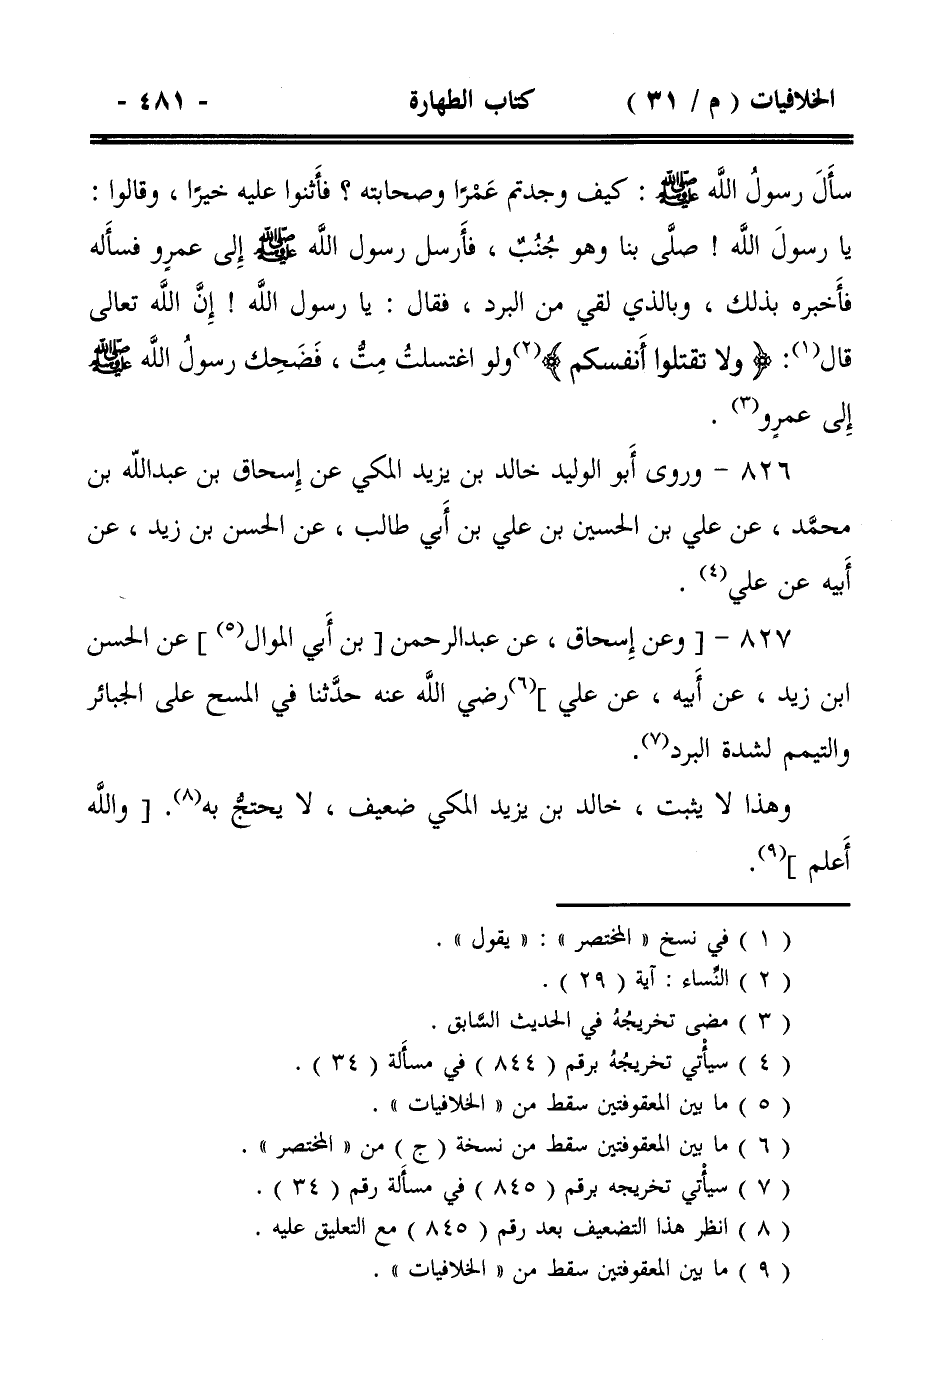 الخلافيات ( م / ٣١ ) كتاب الطهارة - ٤٨١ -
سأَلَ رسولُ اللَّه ﷺ : كيف وجدتم عَمْرًا وصحابته ؟ فأَثنوا عليه خيرًا ، وقالوا :
يا رسولَ اللَّه ! صلَّى بنا وهو جُنُبٌ ، فأَرسل رسول اللَّه ﷺ إِلى عمرٍو فسأَله
فأَخبره بذلك ، وبالذي لقي من البرد ، فقال : يا رسول اللَّه ! إِنَّ اللَّه تعالى
قال(١): ﴿ ولا تقتلوا أَنفسكم ﴾(٢)ولو اغتسلتُ مِتُّ ، فَضَحِك رسولُ اللَّه ﷺ
إِلى عمرٍو(٣) .
٨٢٦ - وروى أَبو الوليد خالد بن يزيد المكي عن إِسحاق بن عبداللَّه بن
محمَّد ، عن علي بن الحسين بن علي بن أَبي طالب ، عن الحسن بن زيد ، عن
أَبيه عن علي(٤) .
٨٢٧ - [ وعن إِسحاق ، عن عبدالرحمن [ بن أَبي الموال(٥) ] عن الحسن
ابن زيد ، عن أَبيه ، عن علي ](٦)رضي اللَّه عنه حدَّثنا في المسح على الجبائر
والتيمم لشدة البرد(٧).
وهذا لا يثبت ، خالد بن يزيد المكي ضعيف ، لا يحتجُّ به(٨). [ واللَّه
أَعلم ](٩).
( ١ ) في نسخ « المختصر » : « يقول » .
( ٢ ) النِّساء : آية ( ٢٩ ) .
( ٣ ) مضى تخريجُهُ في الحديث السَّابق .
( ٤ ) سيأْتي تخريجُهُ برقم ( ٨٤٤ ) في مسأَلة ( ٣٤ ) .
( ٥ ) ما بين المعقوفتين سقط من « الخلافيات » .
( ٦ ) ما بين المعقوفتين سقط من نسخة ( ج ) من « المختصر » .
( ٧ ) سيأْتي تخريجه برقم ( ٨٤٥ ) في مسأَلة رقم ( ٣٤ ) .
( ٨ ) انظر هذا التضعيف بعد رقم ( ٨٤٥ ) مع التعليق عليه .
( ٩ ) ما بين المعقوفتين سقط من « الخلافيات » .